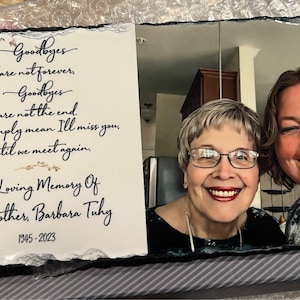 Goodbyes
are not forever,
Goodbyes
are not the end.
mply mean I'll miss you,
til we meet again.
Loving Memory Of
other, Barbara Tuhy
1945 - 2023